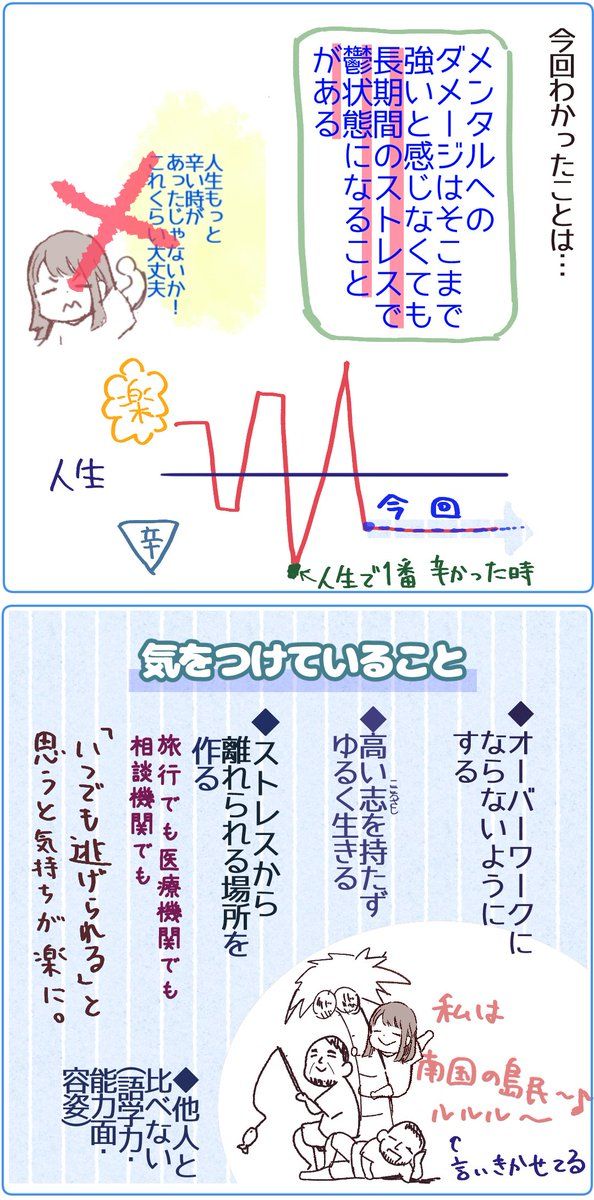 今回わかったことは…
メンタルへの
ダメージはそこまで
強いと感じなくても
長期間のストレスで
鬱状態になること
がある
人生もっと
辛い時が
あったじゃないか!
これくらい大丈夫
楽
人生
辛
今回
←人生で1番 辛かった時
気をつけていること
◆オーバーワークに
ならないように
する
◆高い志を持たず
こころざし
ゆるく生きる
◆ストレスから
離れられる場所を
作る
旅行でも医療機関でも
相談機関でも
「いつでも逃げられる」と
思うと気持ちが楽に。
◆他人と
比べない
(語学力・
能力面・
容姿)
私は
南国の島民〜♪
ルルル〜
↑言いきかせてる